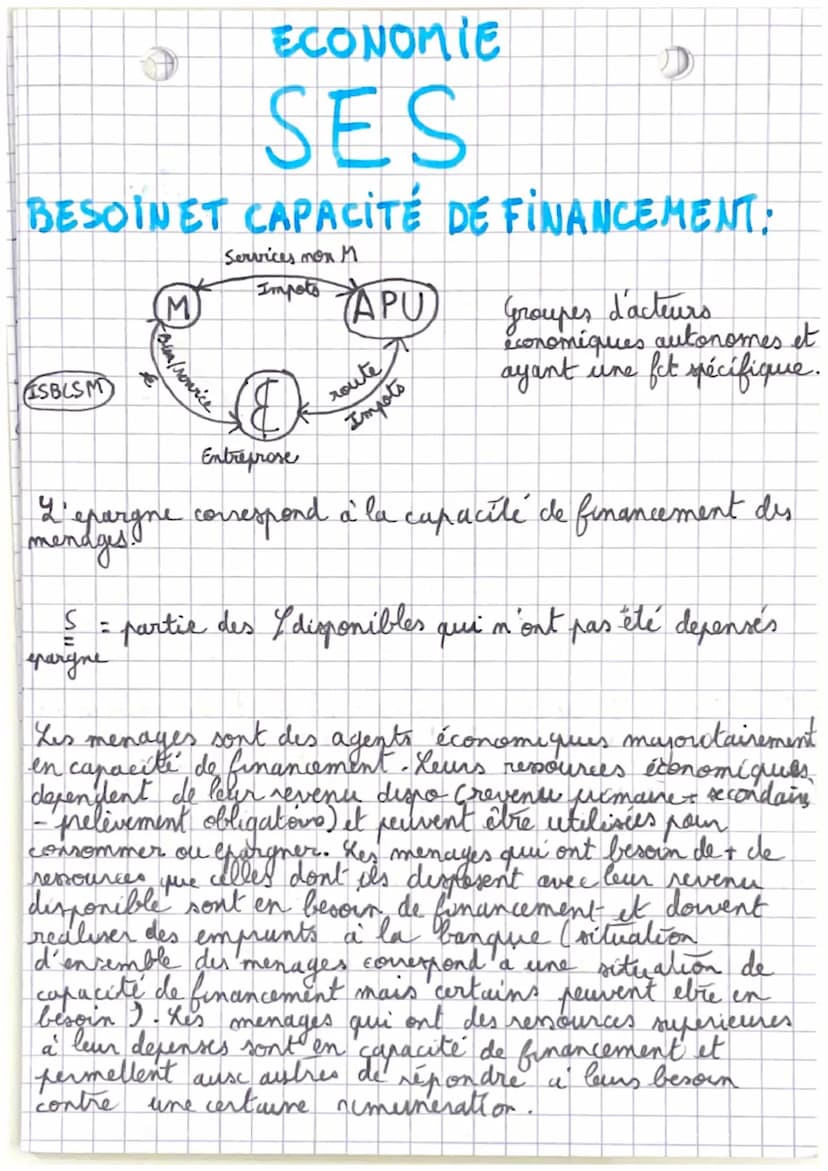 ECONOMIE
SES
BESOIN ET CAPACITÉ DE FINANCEMENT:
Services non M
Impots
M
APU
Bien/service
€
ISBLSM
E
route
Impots
Entreprose
Groupes d'acteurs
économiques autonomes et
ayant une fct spécifique.
L'epargne correspond à la capacité de financement des
menages.
S = partie des Y disponibles qui n'ont pas été depensés
=
epargne
Les menages sont des agents économiques majoritairement
en capacité de financement. Leurs ressources économiques
dependent de leur revenu dispo (revenu primaire + secondaire
- prelèvement obligatoire) et peuvent être utilisées pour
consommer ou epargner. Les menages qui ont besoin de + de
ressources que celles dont ils disposent avec leur revenu
disponible sont en besoin de financement et doivent
realiser des emprunts à la banque (situation
d'ensemble des menages correspond à une situation de
capacité de financement mais certains peuvent etre en
besoin). Les menages qui ont des ressources superieures
à leur depenses sont en capacité de financement et
permettent aux autres de répondre à leurs besoin
contre une certaine remuneration.